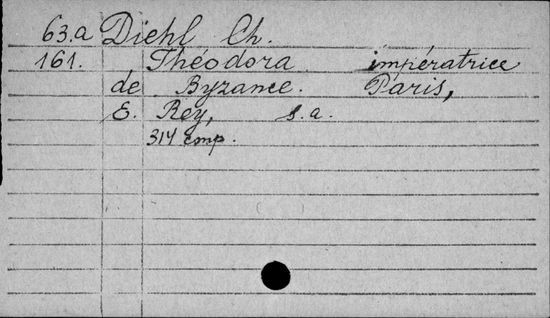 63.a Diehl Ch.
161. Théodora impératrice
de Byzance. Paris,
E. Rey, s.a.
314 стр.